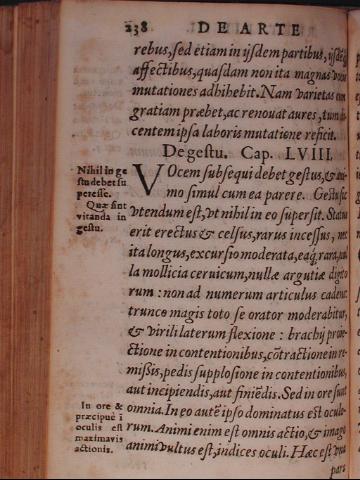 238 DE ARTE
rebus, sed etiam in ijsdem partibus, ijsdem
affectibus, quasdam non ita magnas
mutationes adhibebit. Nam varietas cum
gratiam præbet, ac renouat aures, tum di-
centem ipsa laboris mutatione reficit.
De gestu. Cap. LVIII.
VOcem subsequi debet gestus, & ani-
mo simul cum ea parere. Gestu sic
vtendum est, vt nihil in eo supersit. Status
erit erectus & celsus, rarus incessus, nec
ita longus, excursio moderata, eaq́; rara, nul
la mollicia ceruicum, nullæ argutiæ digito
rum: non ad numerum articulus cadens:
trunco magis toto se orator moderabitur,
& virili laterum flexione: brachij proie-
ctione in contentionibus, cõtractione in re-
missis, pedis supplosione in contentionibus,
aut incipiendis, aut finiẽdis. Sed in ore sunt
omnia. In eo autẽ ipso dominatus est oculo-
rum. Animi enim est omnis actio, & imago
animi vultus est, indices oculi. Hæc est vna
pars
Nihil in ge
stu debet su
peresse.
Quæ sint
vitanda in
gestu.
In ore &
præcipuè ĩ
oculis est
maxima vis
actionis.